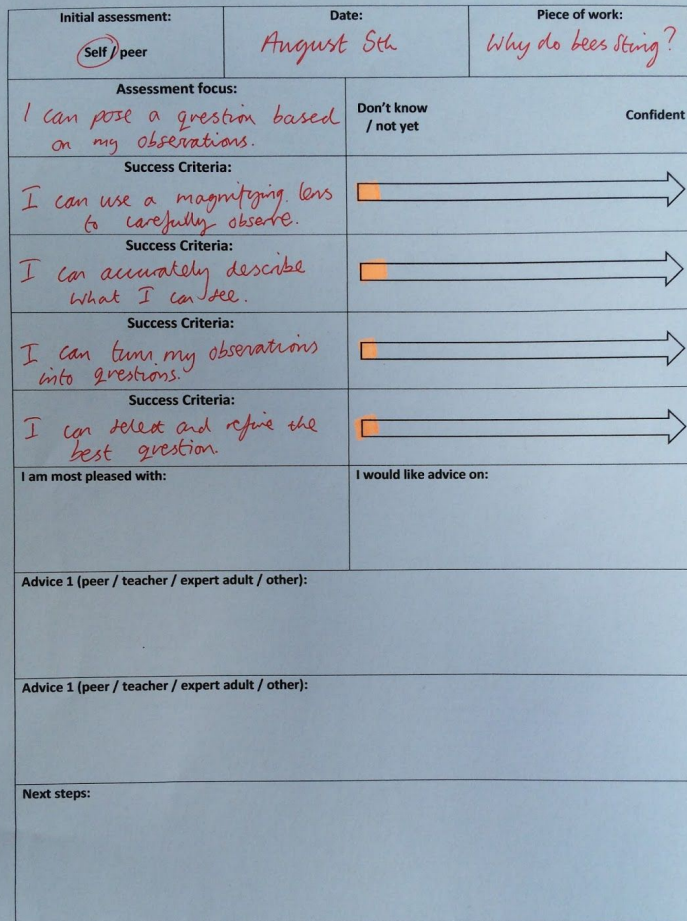 Initial assessment:
Self / peer
Date:
August 5th
Piece of work:
Why do bees sting?
Assessment focus:
I can pose a question based
on my observations.
Don't know
/ not yet
Confident
Success Criteria:
I can use a magnifying lens
to carefully observe.
Success Criteria:
I can accurately describe
what I can see.
Success Criteria:
I can turn my observations
into questions.
Success Criteria:
I can select and refine the
best question.
I am most pleased with:
I would like advice on:
Advice 1 (peer / teacher / expert adult / other):
Advice 1 (peer / teacher / expert adult / other):
Next steps: